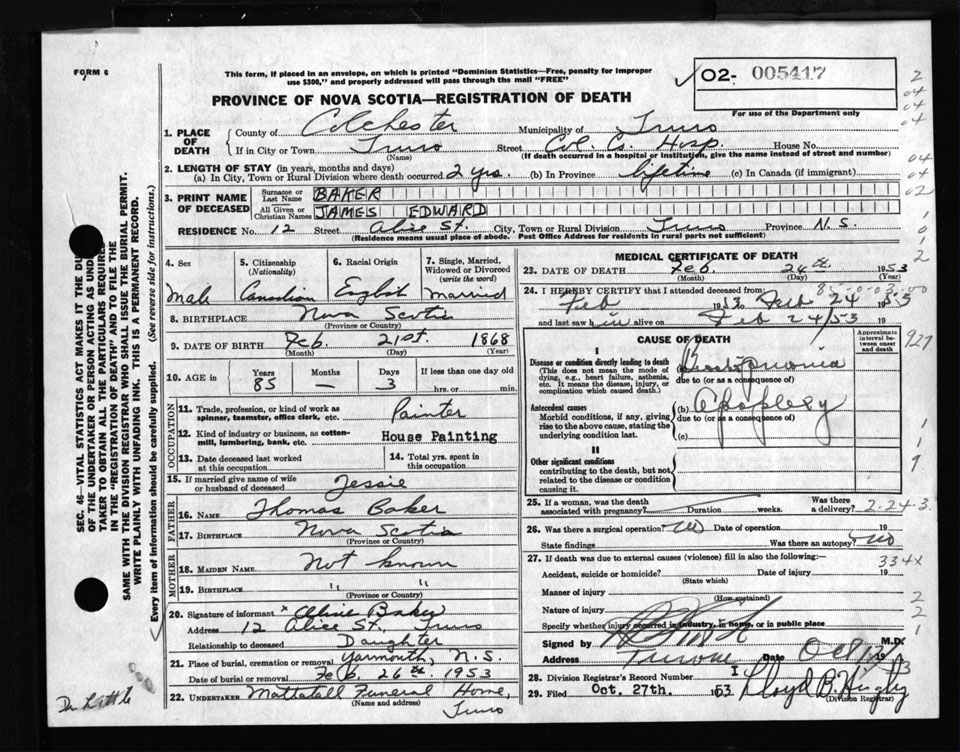 FORM 6
This form, if placed in an envelope, on which is printed "Dominion Statistics—Free, penalty for improper
use $300," and properly addressed will pass through the mail "FREE"
02- 005417
For use of the Department only
PROVINCE OF NOVA SCOTIA—REGISTRATION OF DEATH
1. PLACE OF DEATH
County of Colchester Municipality of Truro
If in City or Town Truro Street Col. Co. Hosp. House No.
(Name) (If death occurred in a hospital or institution, give the name instead of street and number)
2. LENGTH OF STAY (in years, months and days)
(a) In City, Town or Rural Division where death occurred 2 yrs. (b) In Province lifetime (c) In Canada (if immigrant)
3. PRINT NAME OF DECEASED
Surname or Last Name BAKER
All Given or Christian Names JAMES EDWARD
RESIDENCE No. 12 Street Alice St. City, Town or Rural Division Truro Province N.S.
(Residence means usual place of abode. Post Office Address for residents in rural parts not sufficient)
4. Sex
Male
5. Citizenship (Nationality)
Canadian
6. Racial Origin
English
7. Single, Married, Widowed or Divorced (write the word)
Married
8. BIRTHPLACE Nova Scotia
(Province or Country)
9. DATE OF BIRTH Feb. 21st. 1868
(Month) (Day) (Year)
10. AGE in Years Months Days If less than one day old
85 — 3 hrs. or min.
OCCUPATION
11. Trade, profession, or kind of work as spinner, teamster, office clerk, etc. Painter
12. Kind of industry or business, as cotton-mill, lumbering, bank, etc. House Painting
13. Date deceased last worked at this occupation
14. Total yrs. spent in this occupation
15. If married give name of wife or husband of deceased Jessie
FATHER
16. Name Thomas Baker
17. Birthplace Nova Scotia
(Province or Country)
MOTHER
18. MAIDEN NAME Not known
19. BIRTHPLACE " "
(Province or Country)
20. Signature of informant x Alice Baker
Address 12 Alice St. Truro
Relationship to deceased Daughter
21. Place of burial, cremation or removal Yarmouth, N.S.
Date of burial or removal Feb. 26th. 1953
22. UNDERTAKER Mattatall Funeral Home,
(Name and address)
Truro
MEDICAL CERTIFICATE OF DEATH
23. DATE OF DEATH Feb. 24th. 1953
(Month) (Day) (Year)
24. I HEREBY CERTIFY that I attended deceased from:
Feb 1953 Feb 24 1953
and last saw him alive on Feb 24/53 19
CAUSE OF DEATH
Approximate interval between onset and death
I
Disease or condition directly leading to death
(This does not mean the mode of dying, e.g., heart failure, asthenia, etc. It means the disease, injury, or complication which caused death.)
due to (or as a consequence of)
Antecedent causes
Morbid conditions, if any, giving rise to the above cause, stating the underlying condition last.
(b) Apoplexy
due to (or as a consequence of)
(c)
II
Other significant conditions
contributing to the death, but not related to the disease or condition causing it.
25. If a woman, was the death associated with pregnancy? Duration weeks. Was there a delivery?
26. Was there a surgical operation? no Date of operation 19
State findings Was there an autopsy? no
27. If death was due to external causes (violence) fill in also the following:—
Accident, suicide or homicide? Date of injury 19
(State which)
Manner of injury
(How sustained)
Nature of injury
Specify whether injury occurred in industry, in home, or in public place
Signed by M.D.
Address Truro Date
28. Division Registrar's Record Number
29. Filed Oct. 27th. 1953 Lloyd B.
(Division Registrar)
SEC. 46—VITAL STATISTICS ACT MAKES IT THE DU
OF THE UNDERTAKER OR PERSON ACTING AS UND
TAKER TO OBTAIN ALL THE PARTICULARS REQUIRE
IN THE "REGISTRATION OF DEATH" AND TO FILE THE
SAME WITH THE DIVISION REGISTRAR WHO SHALL ISSUE THE BURIAL PERMIT.
WRITE PLAINLY WITH UNFADING INK. THIS IS A PERMANENT RECORD.
Every item of information should be carefully supplied. (See reverse side for instructions.)
2
04
04
04
04
04
02
927
2-24-3
334x
Dr. Little